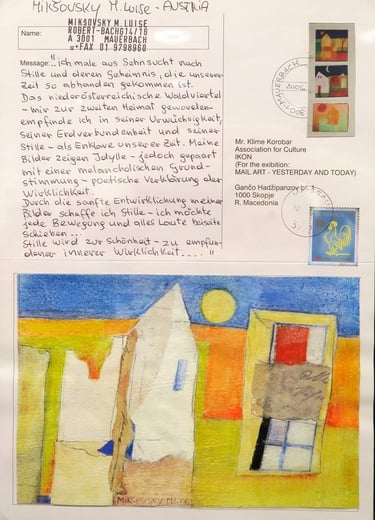 MIKSOVSKY M. Luise - AUSTRIA
Name:
MIKSOVSKY M.LUISE
ROBERT-BACHG14/16
A 3001 MAUERBACH
+FAX 01 9798960
Message: "ich male aus Sehnsucht nach
Stille und deren Geheimnis, die unserer
Zeit so abhanden gekommen ist.
Das niederösterreichische Waldviertel
- mir zur zweiten Heimat geworden -
empfinde ich in seiner Urwüchsigkeit,
seiner Erdverbundenheit und seiner
Stille - als Enklave unserer Zeit. Meine
Bilder zeigen Idylle - jedoch gepaart
mit einer melancholischen Grund-
stimmung - poetische Verklärung der
Wirklichkeit.
Durch die sanfte Entwirklichung meiner
Bilder schaffe ich Stille - ich möchte
jede Bewegung und alles Laute beiseite
schieben...
Stille wird zur Schönheit - zu empfun-
dener innerer Wirklichkeit...."
MAUERBACH
3001
Mr. Klime Korobar
Association for Culture
IKON
(For the exibition:
MAIL ART - YESTERDAY AND TODAY)
Gančo Hadžipanzov br. 3
1000 Skopje
R. Macedonia
MIKSOVSKY M. 06